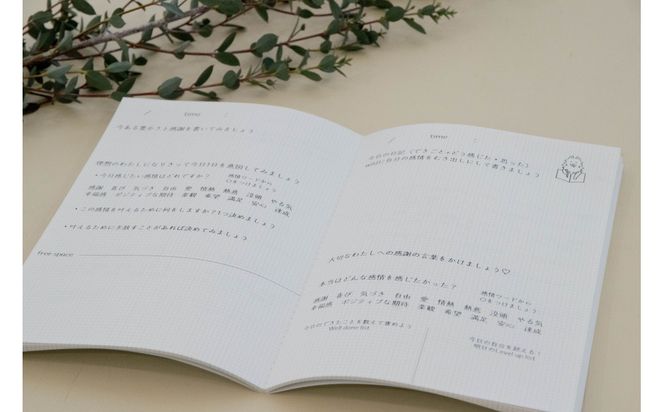 time :
今ある豊かさと感謝を書いてみましょう
理想のわたしになりきって今日1日を意図してみましょう
・今日感じたい感情はどれですか?
感情ワードから
○をつけましょう
感謝 喜び 気づき 自由 愛 情熱 熱意 没頭 やる気
幸福感 ポジティブな期待 楽観 希望 満足 安心 達成
・この感情を叶えるために何をしますか?1つ決めましょう
・叶えるために手放すことがあれば決めてみましょう
free space
time :
今日の日記(できごと+どう感じた+思った)
wish!自分の感情をむき出しにして書きましょう
大切なわたしへの感謝の言葉をかけましょう♡
本当はどんな感情を感じたかった?
感情ワードから
○をつけましょう
感謝 喜び 気づき 自由 愛 情熱 熱意 没頭 やる気
幸福感 ポジティブな期待 楽観 希望 満足 安心 達成
今日のできたことを数えて褒めよう
Well done list
今日の自分を超える!
明日のLevel up list